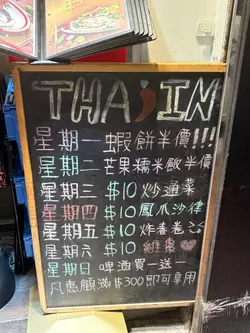 THAI IN
星期一蝦餅半價!!!
星期二芒果糯米飯半價
星期三 $10炒通菜
星期四 $10鳳爪沙律
星期五 $10炸香卷
星期六 $10
星期日 啤酒買一送一
凡惠顧滿$300即可享用